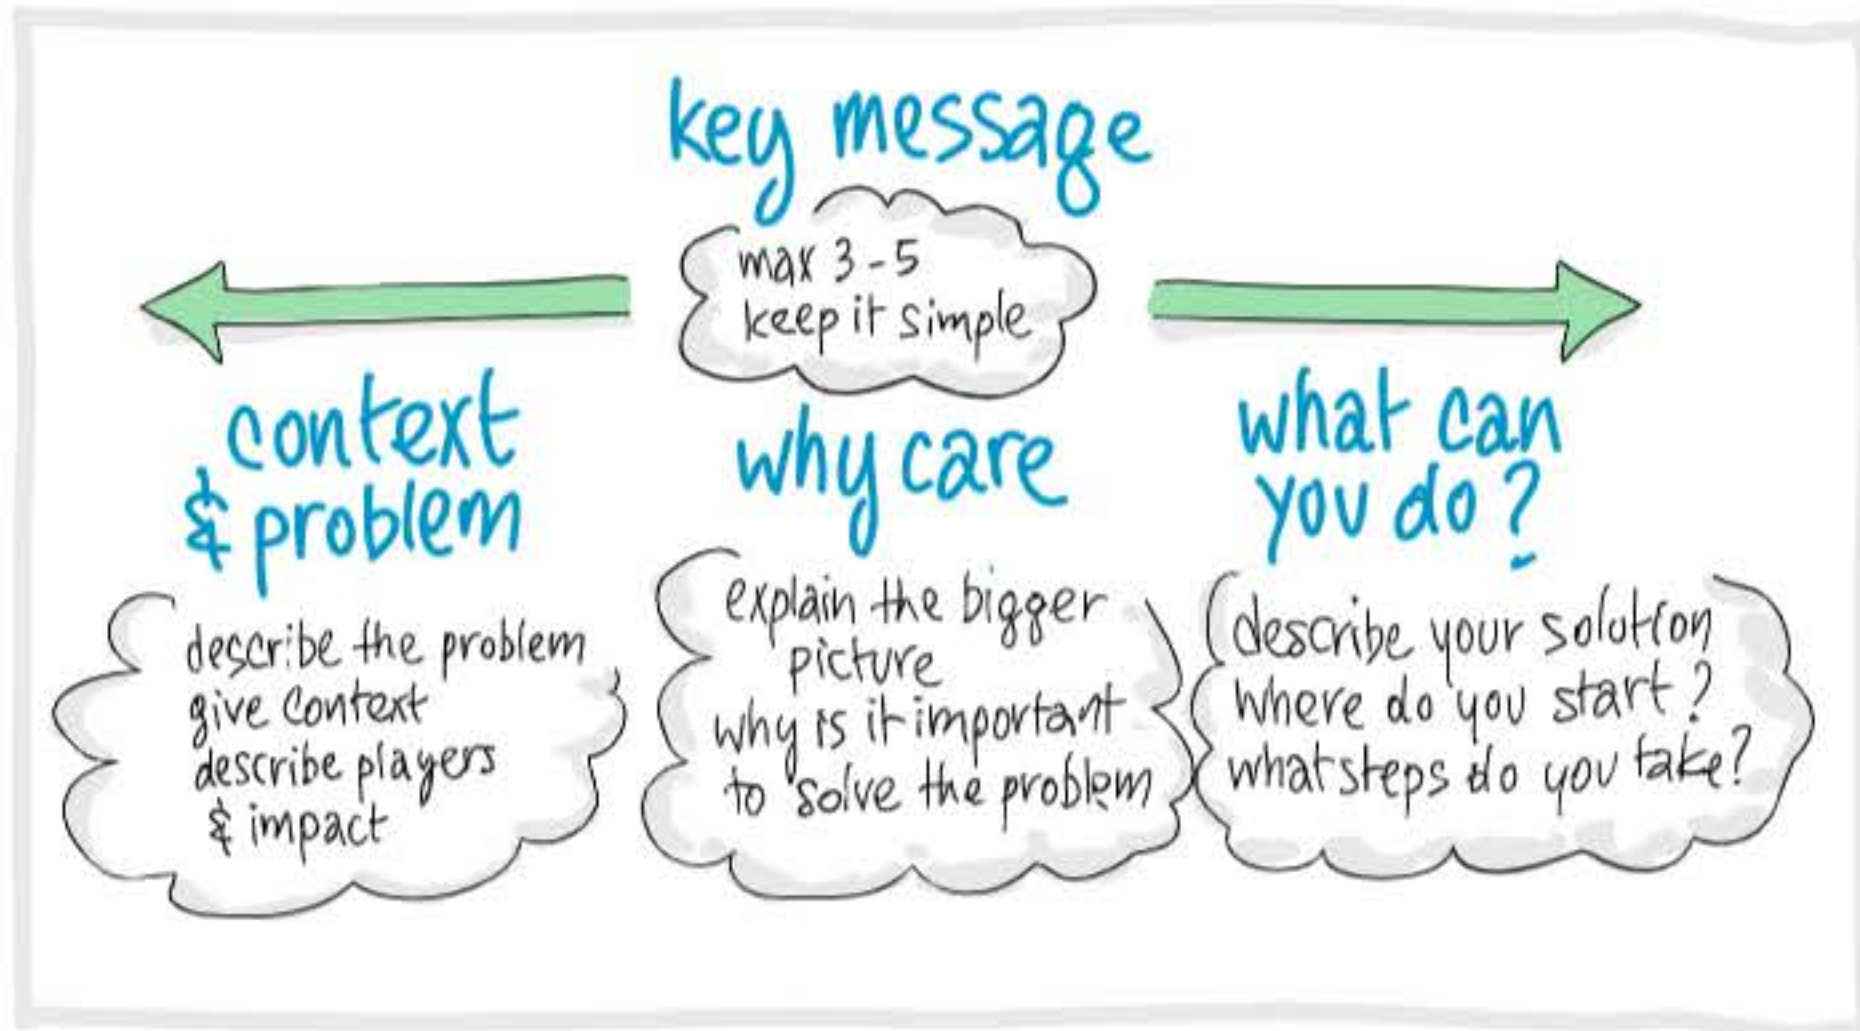 key message
max 3-5
keep it simple
context
& problem
describe the problem
give context
describe players
& impact
why care
explain the bigger
picture
why is it important
to solve the problem
what can
you do?
describe your solution
where do you start?
what steps do you take?